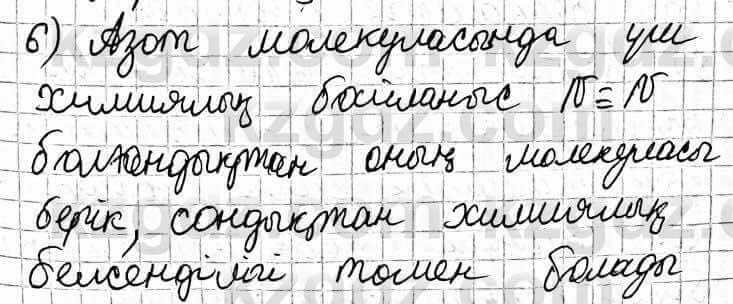 б) Азот молекуласында үш
химиялық байланыс N≡N
болғандықтан оның молекуласы
берік, сондықтан химиялық
белсенділігі төмен болады